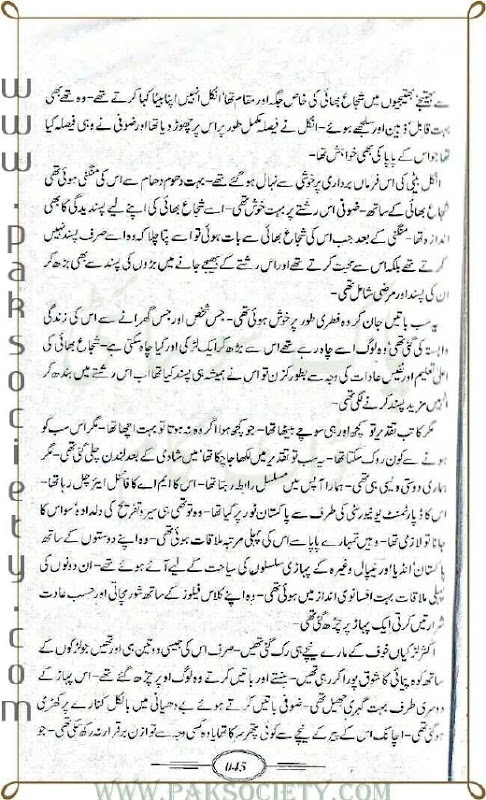 سے بھتیجے بھتیجیوں میں شجاع بھائی کی خاص جگہ اور مقام تھا' انکل انہیں اپنا بیٹا کہا کرتے تھے۔ وہ تھے بھی
بہت قابل' ذہین اور سلجھے ہوئے۔ انکل نے فیصلہ مکمل طور پر اس پر چھوڑ دیا تھا اور ضوفی نے وہی فیصلہ کیا
تھا جو اس کے پاپا کی بھی خواہش تھا۔
انکل بیٹی کی اس فرماں برداری پر خوشی سے نہال ہو گئے تھے۔ بہت دھوم دھام سے اس کی منگنی ہوئی تھی
شجاع بھائی کے ساتھ۔ ضوفی اس رشتے پر بہت خوش تھی۔ اسے شجاع بھائی کی اپنے لیے پسندیدگی کا بھی
اندازہ تھا۔ منگنی کے بعد جب اس کی شجاع بھائی سے بات ہوئی تو اسے پتا چلا کہ وہ اسے صرف پسند نہیں
کرتے تھے بلکہ اس سے محبت کرتے تھے اور اس رشتے کے بھیجے جانے میں بڑوں کی پسند سے بھی بڑھ کر
ان کی پسند اور مرضی شامل تھی۔
یہ سب باتیں جان کر وہ فطری طور پر خوش ہوئی تھی۔ جس شخص اور جس گھرانے سے اس کی زندگی
وابستہ کی گئی تھی' وہ لوگ اسے چاہ رہے تھے اس سے بڑھ کر ایک لڑکی اور کیا چاہ سکتی ہے۔ شجاع بھائی کی
اعلیٰ تعلیم اور نفیس عادات کی وجہ سے بطور کزن تو اس نے ہمیشہ ہی پسند کیا تھا اب اس رشتے میں بندھ کر
انہیں مزید پسند کرنے لگی تھی۔
مگر کاتب تقدیر تو کچھ اور ہی سوچے بیٹھا تھا۔ جو کچھ ہوا اگر وہ نہ ہوتا تو بہت اچھا تھا۔ مگر اس سب کو
ہونے سے کون روک سکتا تھا۔ یہ سب تو تقدیر میں لکھا جا چکا تھا' میں شادی کے بعد لندن چلی گئی تھی۔ مگر
ہماری دوستی ویسی ہی تھی۔ ہمارا آپس میں مسلسل رابطہ رہتا تھا۔ اس کا ایم اے کا فائنل ایئر چل رہا تھا۔
اس کا ڈپارٹمنٹ یونیورسٹی کی طرف سے پاکستان ٹور پر گیا تھا۔ وہ تو تھی ہی سیر و تفریح کی دلدادہ' سو اس کا
جانا تو لازمی تھا۔ وہیں تمہارے پاپا سے اس کی پہلی مرتبہ ملاقات ہوئی تھی۔ وہ اپنے دوستوں کے ساتھ
پاکستان' انڈیا اور نیپال وغیرہ کے پہاڑی سلسلوں کی سیاحت کے لیے آئے ہوئے تھے۔ ان دونوں کی
پہلی ملاقات بہت افسانوی انداز میں ہوئی تھی۔ وہ اپنے کلاس فیلوز کے ساتھ شور مچاتی اور حسب عادت
شرارتیں کرتی ایک پہاڑ پر چڑھ گئی تھی۔
اکثر لڑکیاں خوف کے مارے نیچے ہی رک گئی تھیں۔ صرف اس کی جیسی دو تین ہی اور تھیں جو لڑکوں کے
ساتھ کوہ پیمائی کا شوق پورا کر رہی تھیں۔ ہنستے اور باتیں کرتے وہ لوگ اوپر چڑھ گئے تھے۔ اس پہاڑ کے
دوسری طرف بہت گہری جھیل تھی۔ ضوفی باتیں کرتے ہوئے بے دھیانی میں بالکل کنارے پر کھڑی
ہو گئی تھی۔ اچانک اس کے پیر کے نیچے سے کوئی پتھر سرکا تھا یا وہ کسی وجہ سے توازن برقرار نہ رکھ سکی تھی۔ جو
045
www.paksociety.com
WWW.PAKSOCIETY.COM